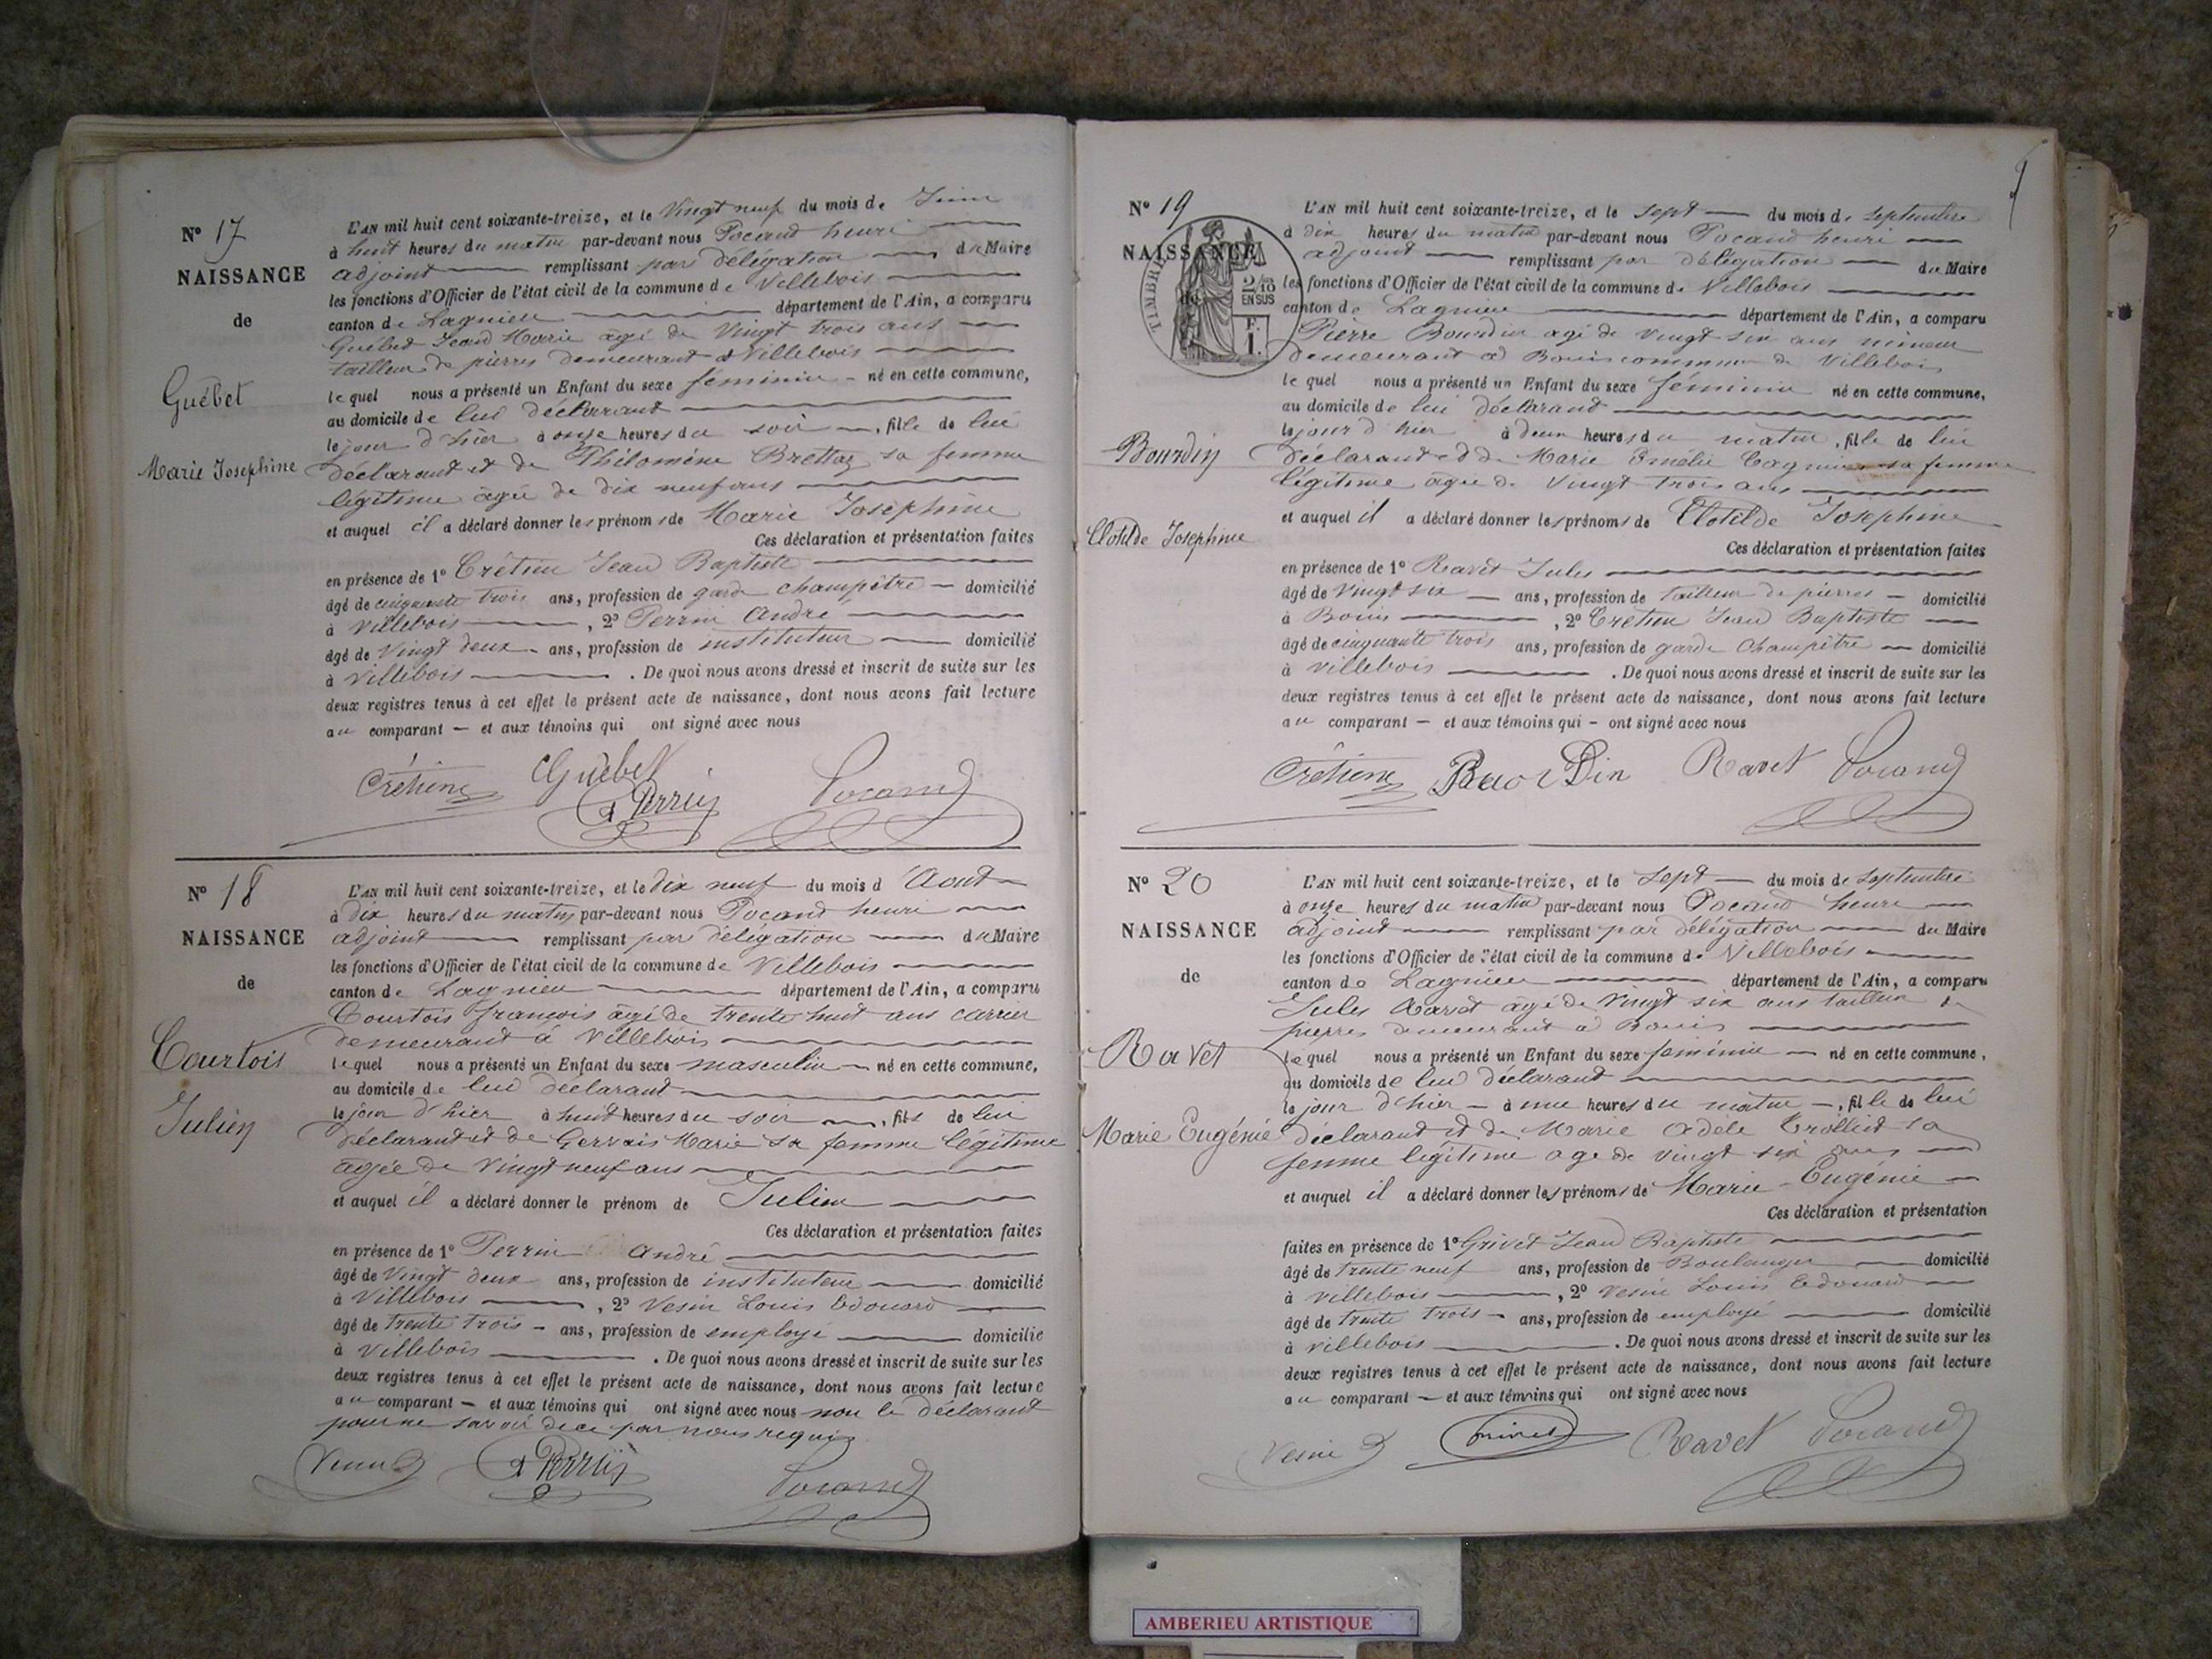 N° 17
NAISSANCE
de
Guébet
Marie Josephine
L'AN mil huit cent soixante-treize, et le Vingt neuf du mois de Juin
à huit heures du matin par-devant nous Pocand henri
adjoint remplissant par délégation du Maire
les fonctions d'Officier de l'état civil de la commune de Villebois
canton de Lagnieu département de l'Ain, a comparu
Guébet Jean Marie âgé de Vingt trois ans
tailleur de pierres demeurant à Villebois
lequel nous a présenté un Enfant du sexe féminin né en cette commune,
au domicile de lui déclarant
le jour d'hier à onze heures du soir, fille de lui
déclarant et de Philomène Brettaz sa femme
légitime âgée de dix neuf ans
et auquel il a déclaré donner les prénoms de Marie Joséphine
Ces déclaration et présentation faites
en présence de 1° Crétien Jean Baptiste
âgé de cinquante trois ans, profession de garde champêtre domicilié
à Villebois, 2° Perrin André
âgé de Vingt deux ans, profession de instituteur domicilié
à Villebois. De quoi nous avons dressé et inscrit de suite sur les
deux registres tenus à cet effet le présent acte de naissance, dont nous avons fait lecture
au comparant et aux témoins qui ont signé avec nous
Crétien Guébet Pocand
A Perrin
N° 18
NAISSANCE
de
Courtois
Julien
L'AN mil huit cent soixante-treize, et le dix neuf du mois d'Aout
à dix heures du matin par-devant nous Pocand henri
adjoint remplissant par délégation du Maire
les fonctions d'Officier de l'état civil de la commune de Villebois
canton de Lagnieu département de l'Ain, a comparu
Courtois françois âgé de trente huit ans carrier
demeurant à Villebois
lequel nous a présenté un Enfant du sexe masculin né en cette commune,
au domicile de lui déclarant
le jour d'hier à huit heures du soir, fils de lui
déclarant et de Gervais Marie sa femme légitime
âgée de Vingt neuf ans
et auquel il a déclaré donner le prénom de Julien
Ces déclaration et présentation faites
en présence de 1° Perrin André
âgé de Vingt deux ans, profession de instituteur domicilié
à Villebois, 2° Vesin Louis Edouard
âgé de trente trois ans, profession de employé domicilié
à Villebois. De quoi nous avons dressé et inscrit de suite sur les
deux registres tenus à cet effet le présent acte de naissance, dont nous avons fait lecture
au comparant et aux témoins qui ont signé avec nous non le déclarant
pour ne savoir de ce par nous requis
Vesin A Perrin Pocand
N° 19
NAISSANCE
de
TIMBRE
2/10
EN SUS
F.
1.
Bourdin
Clotilde Josephine
L'AN mil huit cent soixante-treize, et le sept du mois de septembre
à dix heures du matin par-devant nous Pocand henri
adjoint remplissant par délégation du Maire
les fonctions d'Officier de l'état civil de la commune de Villebois
canton de Lagnieu département de l'Ain, a comparu
Pierre Bourdin agé de vingt six ans mineur
demeurant à Bouis commune de Villebois
lequel nous a présenté un Enfant du sexe féminin né en cette commune,
au domicile de lui déclarant
le jour d'hier à deux heures du matin, fille de lui
déclarant et de Marie Emélie sa femme
légitime âgée de Vingt trois ans
et auquel il a déclaré donner les prénoms de Clotilde Josephine
Ces déclaration et présentation faites
en présence de 1° Ravet Jules
âgé de Vingt six ans, profession de tailleur de pierres domicilié
à Bouis, 2° Crétien Jean Baptiste
âgé de cinquante trois ans, profession de garde champêtre domicilié
à Villebois. De quoi nous avons dressé et inscrit de suite sur les
deux registres tenus à cet effet le présent acte de naissance, dont nous avons fait lecture
au comparant et aux témoins qui ont signé avec nous
Crétien Bourdin Ravet Pocand
N° 20
NAISSANCE
de
Ravet
Marie Eugénie
L'AN mil huit cent soixante-treize, et le sept du mois de septembre
à onze heures du matin par-devant nous Pocand henri
adjoint remplissant par délégation du Maire
les fonctions d'Officier de l'état civil de la commune de Villebois
canton de Lagnieu département de l'Ain, a comparu
Jules Ravet âgé de Vingt six ans tailleur de
pierres demeurant à Bouis
lequel nous a présenté un Enfant du sexe féminin né en cette commune,
au domicile de lui déclarant
le jour d'hier à une heures du matin, fille de lui
déclarant et de Marie Adele Trolliet sa
femme légitime age de vingt six ans
et auquel il a déclaré donner les prénoms de Marie Eugénie
Ces déclaration et présentation
faites en présence de 1° Grivet Jean Baptiste
âgé de trente neuf ans, profession de Boulanger domicilié
à Villebois, 2° Vesin Louis Edouard
âgé de trente trois ans, profession de employé domicilié
à Villebois. De quoi nous avons dressé et inscrit de suite sur les
deux registres tenus à cet effet le présent acte de naissance, dont nous avons fait lecture
au comparant et aux témoins qui ont signé avec nous
Vesin Grivet Ravet Pocand
AMBERIEU ARTISTIQUE